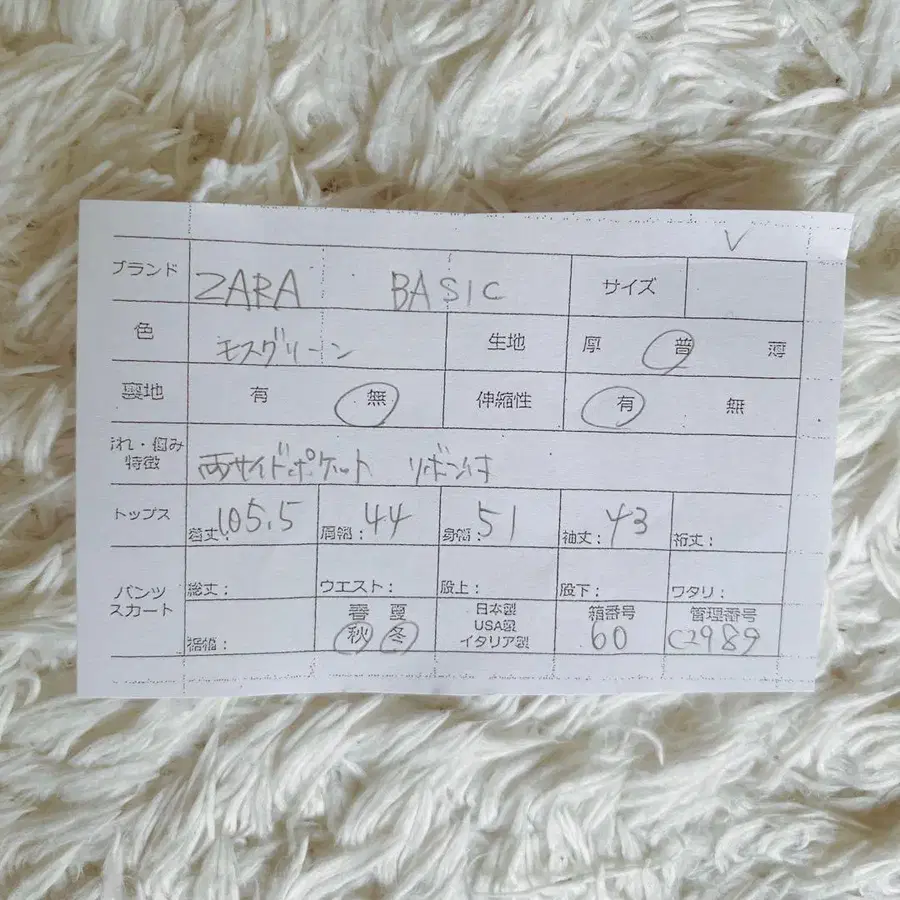 V
ブランド ZARA BASIC サイズ
色 モスグリーン 生地 厚 普 薄
裏地 有 無 伸縮性 有 無
汚れ・傷み
特徴 両サイドポケット リボン付
トップス 着丈：105.5 肩幅：44 身幅：51 袖丈：43 裄丈：
パンツ
スカート 総丈： ウエスト： 股上： 股下： ワタリ：
裾幅： 春 夏 秋 冬 日本製 USA製 イタリア製 箱番号 60 管理番号 C2989